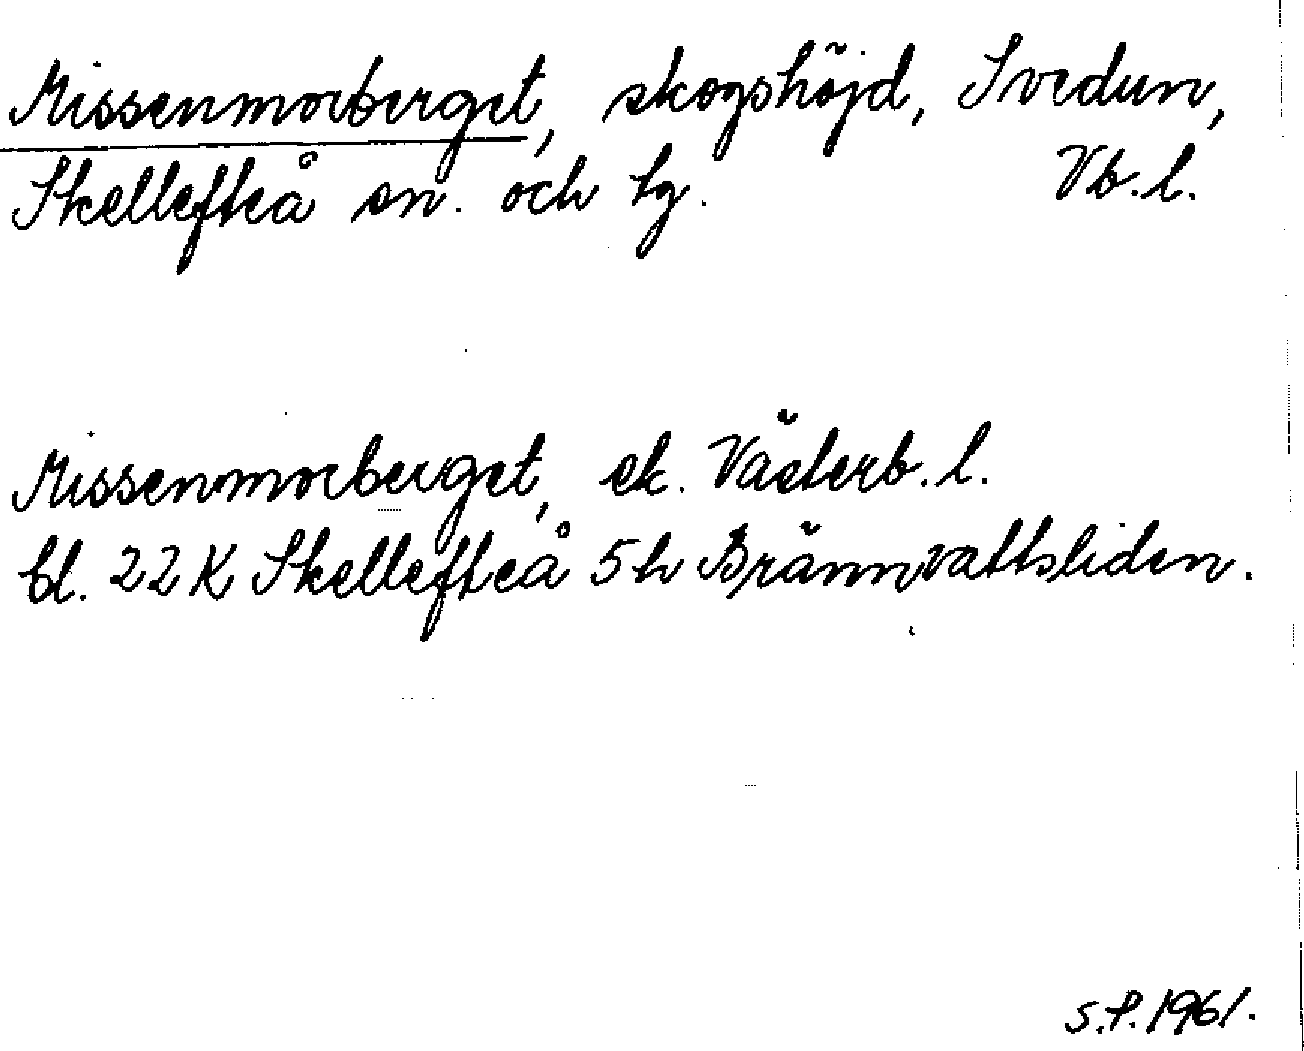 Missenmorberget, skogshöjd, Svedun,
Skellefteå sn. och tg. Vb.l.
Missenmorberget, ek. Västerb.l.
bl. 22 K Skellefteå 5h Brännvattsliden.
S.P. 1961.